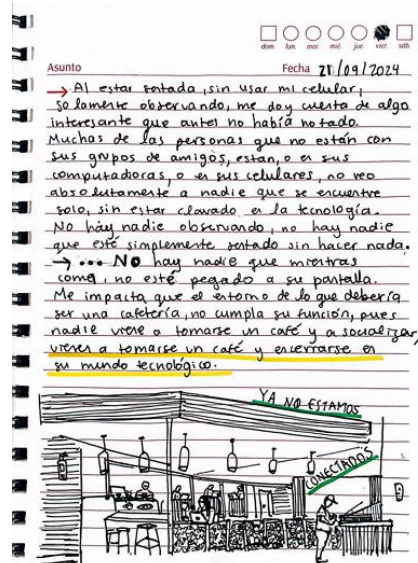 dom. lun. mar. mié. jue. vier. sáb.
Asunto Fecha 21/09/2024
→ Al estar sentada, sin usar mi celular,
solamente observando, me doy cuenta de algo
interesante que antes no había notado.
Muchas de las personas que no están con
sus grupos de amigos, estan, o en sus
computadoras, o en sus celulares, no veo
absolutamente a nadie que se encuentre
solo, sin estar clavado en la tecnología.
No hay nadie observando, no hay nadie
que esté simplemente sentado sin hacer nada.
→ ... NO hay nadie que mientras
coma, no esté pegado a su pantalla.
Me impacta que el entorno de lo que debería
ser una cafetería, no cumpla su función, pues
nadie viene a tomarse un café y a socializar,
vienen a tomarse un café y encerrarse en
su mundo tecnológico.
YA NO ESTAMOS
CONECTADOS